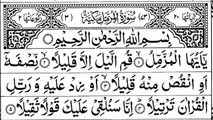 سُوْرَةُ الْمُزَّمِّلِ مَكِّيَّةٌ
بِسْمِ اللّٰهِ الرَّحْمٰنِ الرَّحِيْمِ
يٰۤاَيُّهَا الْمُزَّمِّلُ ۙ قُمِ الَّيْلَ اِلَّا قَلِيْلًا ۙ نِّصْفَهٗۤ
اَوِ انْقُصْ مِنْهُ قَلِيْلًا ۙ اَوْ زِدْ عَلَيْهِ وَرَتِّلِ
الْقُرْاٰنَ تَرْتِيْلًا ؕ اِنَّا سَنُلْقِيْ عَلَيْكَ قَوْلًا ثَقِيْلًا